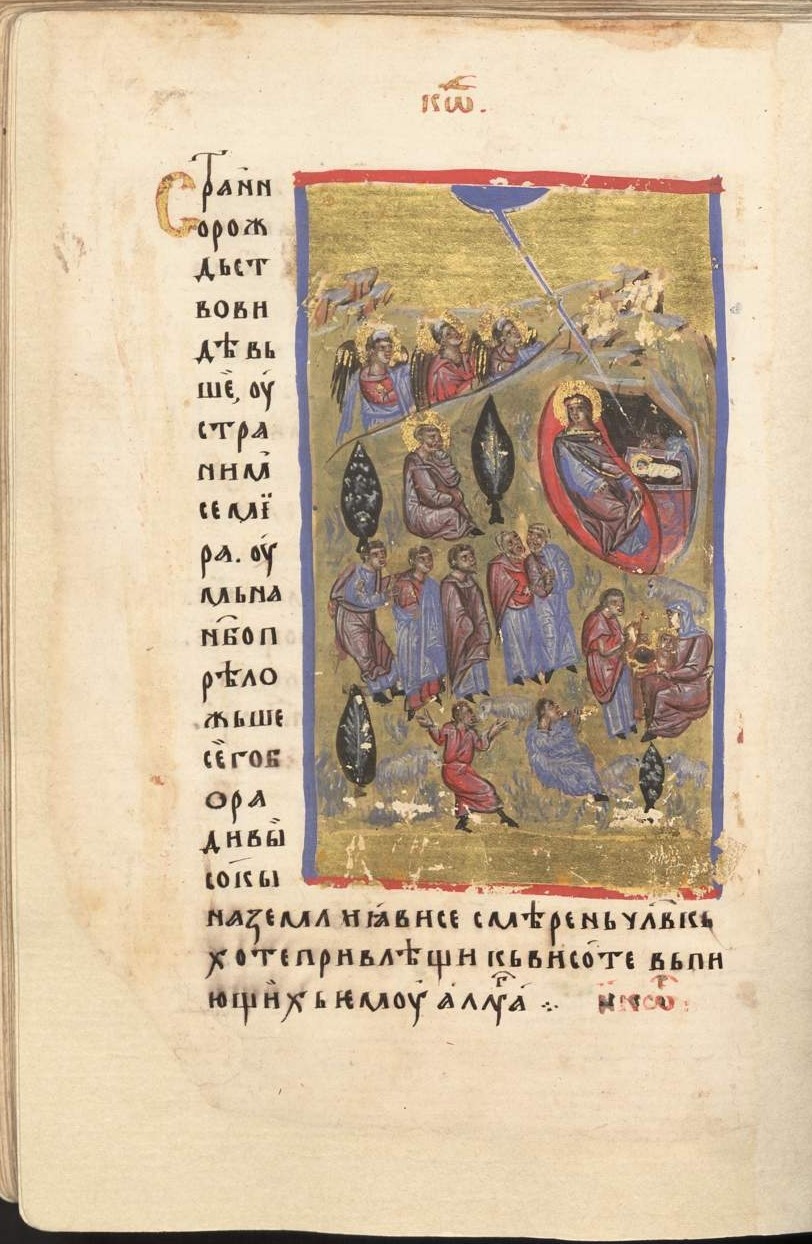 кѡ҃.
Страⷩ҇ни
орож
дьст
вови
дѣвь
ше, оу
стра
нимⷭ҇
семї
ра. оу
мьна
нб҃оп
рѣло
жьше
сегоб
ора
дивы
сокы
наземлиꙗвисе смѣреньчл҃вкь
хотепривлѣщи кьвисоте вьпи
ющихьѥмоу алⷢ҇луа ⁘ икѡⷭ҇